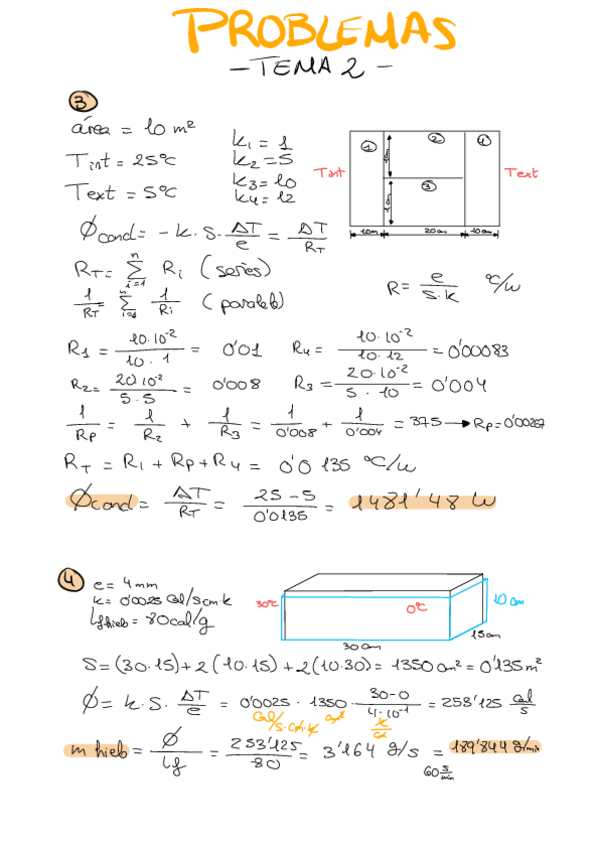 PROBLEMAS
- TEMA 2 -
3
área = 10 m²
Tint = 25°C
Text = 5°C
K₁ = 1
K₂ = 5
K₃ = 10
K₄ = 12
Tint
1
2
3
4
1m
1m
10cm
20cm
10cm
Text
Øcond = - K · S · ΔT/e = ΔT/RT
RT = Σ Ri (series)
n
i=1
1/RT = Σ 1/Ri (paralelo)
n
i=1
R = e/S·K °C/W
R₁ = 10·10⁻²/10·1 = 0'01 R₄ = 10·10⁻²/10·12 = 0'00083
R₂ = 20·10⁻²/5·5 = 0'008 R₃ = 20·10⁻²/5·10 = 0'004
1/RP = 1/R₂ + 1/R₃ = 1/0'008 + 1/0'004 = 375 → RP = 0'00267
RT = R₁ + RP + R₄ = 0'0135 °C/W
Øcond = ΔT/RT = 25-5/0'0135 = 1481'48 W
4
e = 4mm
K = 0'0025 Cal/s cm K
Lfhieb = 80cal/g
30°C
0°C
10 cm
15cm
30cm
S = (30·15) + 2(10·15) + 2(10·30) = 1350 cm² = 0'135 m²
Ø = K · S · ΔT/e = 0'0025 · 1350 · 30-0/4·10⁻¹ = 253'125 Cal/s
Cal/s·cm·K cm² K/cm
m hieb = Ø/Lf = 253'125/80 = 3'164 g/s = 189'844 g/min
60 s/min